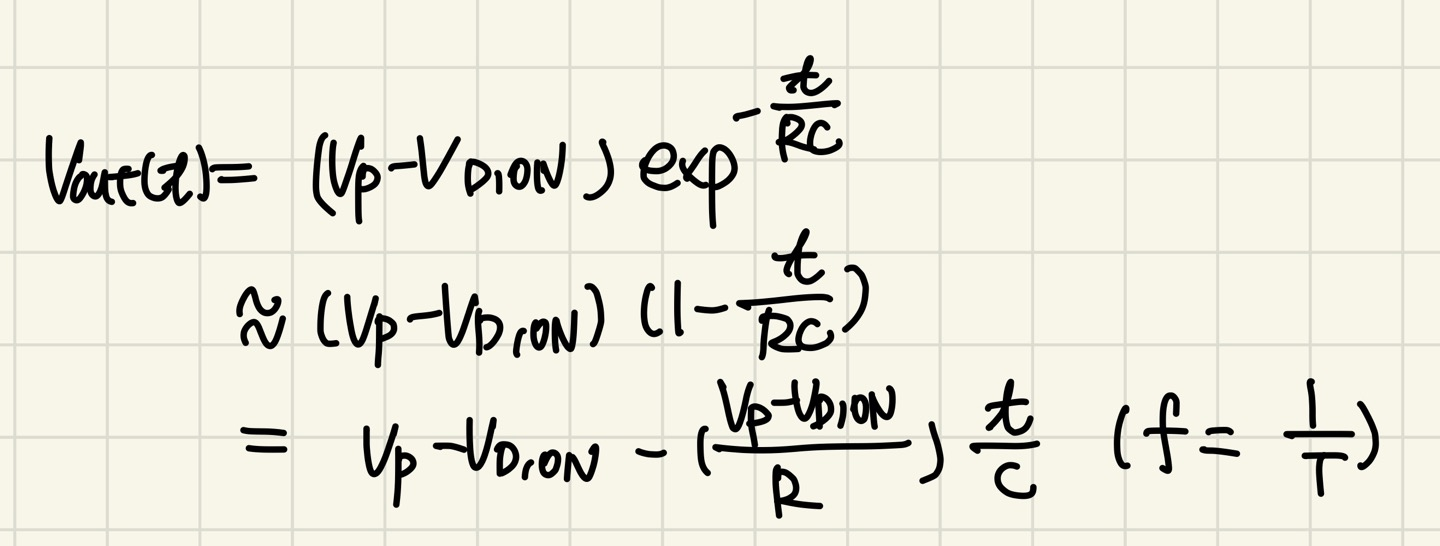 Vout(t) = (Vp - VD,ON) exp^(-t/RC)
≈ (Vp - VD,ON) (1 - t/RC)
= Vp - VD,ON - ((Vp - VD,ON)/R) t/C (f = 1/T)